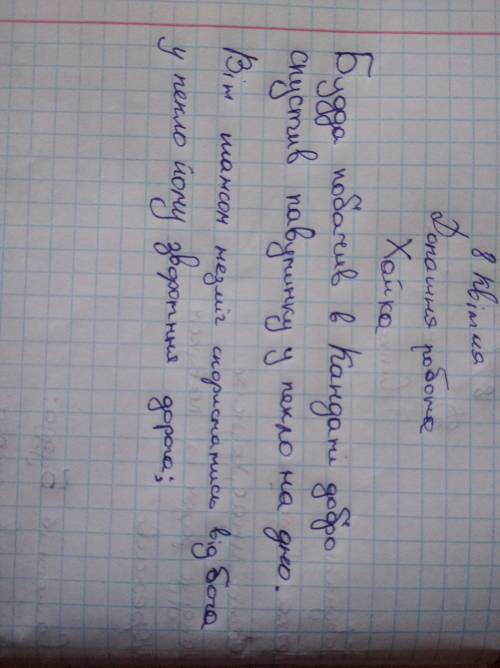 8 квітня
Домашня робота
Хайка
Будда побачив в Кандаті добро
спустив павутинку у пекло на дно.
Він шансом незміг скористатись від бога
у пекло йому зворотння дорога;